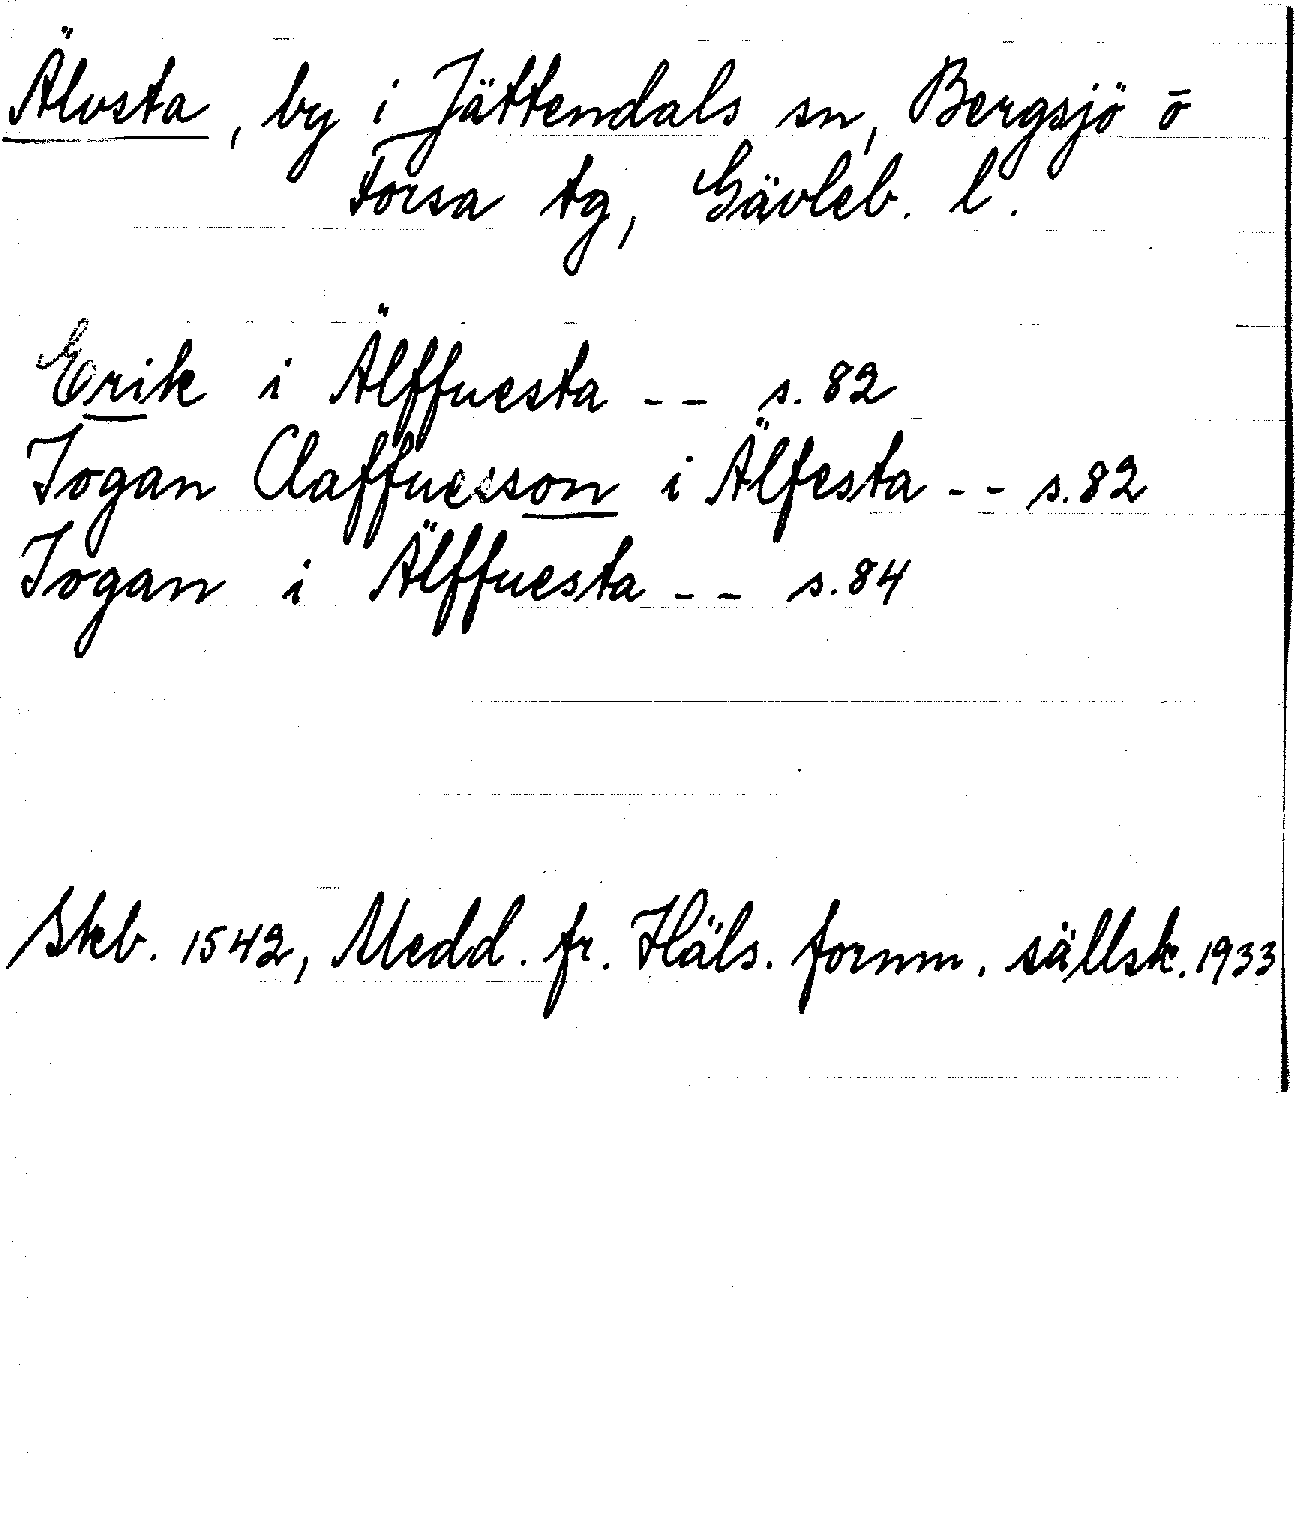 Älvsta, by i Jättendals sn, Bergsjö ō
Forsa tg, Gävleb. l.
Erik i Älffuesta -- s. 82
Jogan Claffuesson i Älfesta -- s. 82
Jogan i Älffuesta -- s. 84
Skb. 1542, Medd. fr. Häls. fornm. sällsk. 1933